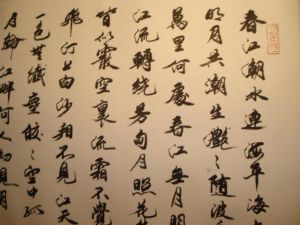 春江潮水連海平海
明月共潮生灩〻隨波
萬里何處春江無月明
江流轉繞芳甸月照花
皆似霰空裏流霜不覺
飛汀上白沙看不見江天
一色無纖塵皎〻空中孤
月輪江畔何人初見月